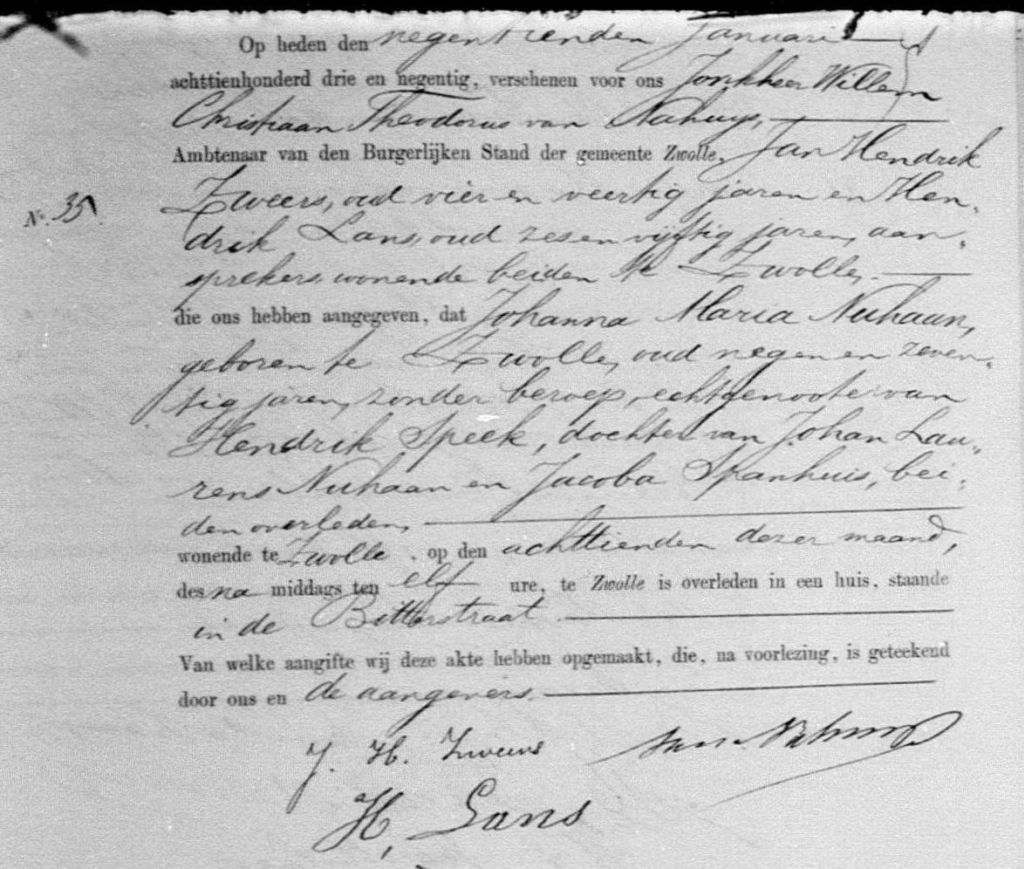 Op heden den negentienden Januari
achttienhonderd drie en negentig, verschenen voor ons Jonkheer Willem
Christiaan Theodorus van Nahuys,
Ambtenaar van den Burgerlijken Stand der gemeente Zwolle, Jan Hendrik
Zweers, oud vier en veertig jaren en Hen-
No. 35.
drik Lans, oud zes en vijftig jaren, aan-
sprekers, wonende beiden te Zwolle,
die ons hebben aangegeven, dat Johanna Maria Nuhaan,
geboren te Zwolle, oud negen en zeven-
tig jaren, zonder beroep, echtgenoote van
Hendrik Speek, dochter van Johan Lau-
rens Nuhaan en Jacoba Spanhuis, bei-
den overleden,
wonende te Zwolle, op den achttienden dezer maand,
des na middags ten elf ure, te Zwolle is overleden in een huis, staande
in de Bitterstraat
Van welke aangifte wij deze akte hebben opgemaakt, die, na voorlezing, is geteekend
door ons en de aangevers.
J. H. Zweers van Nahuys
H, Lans